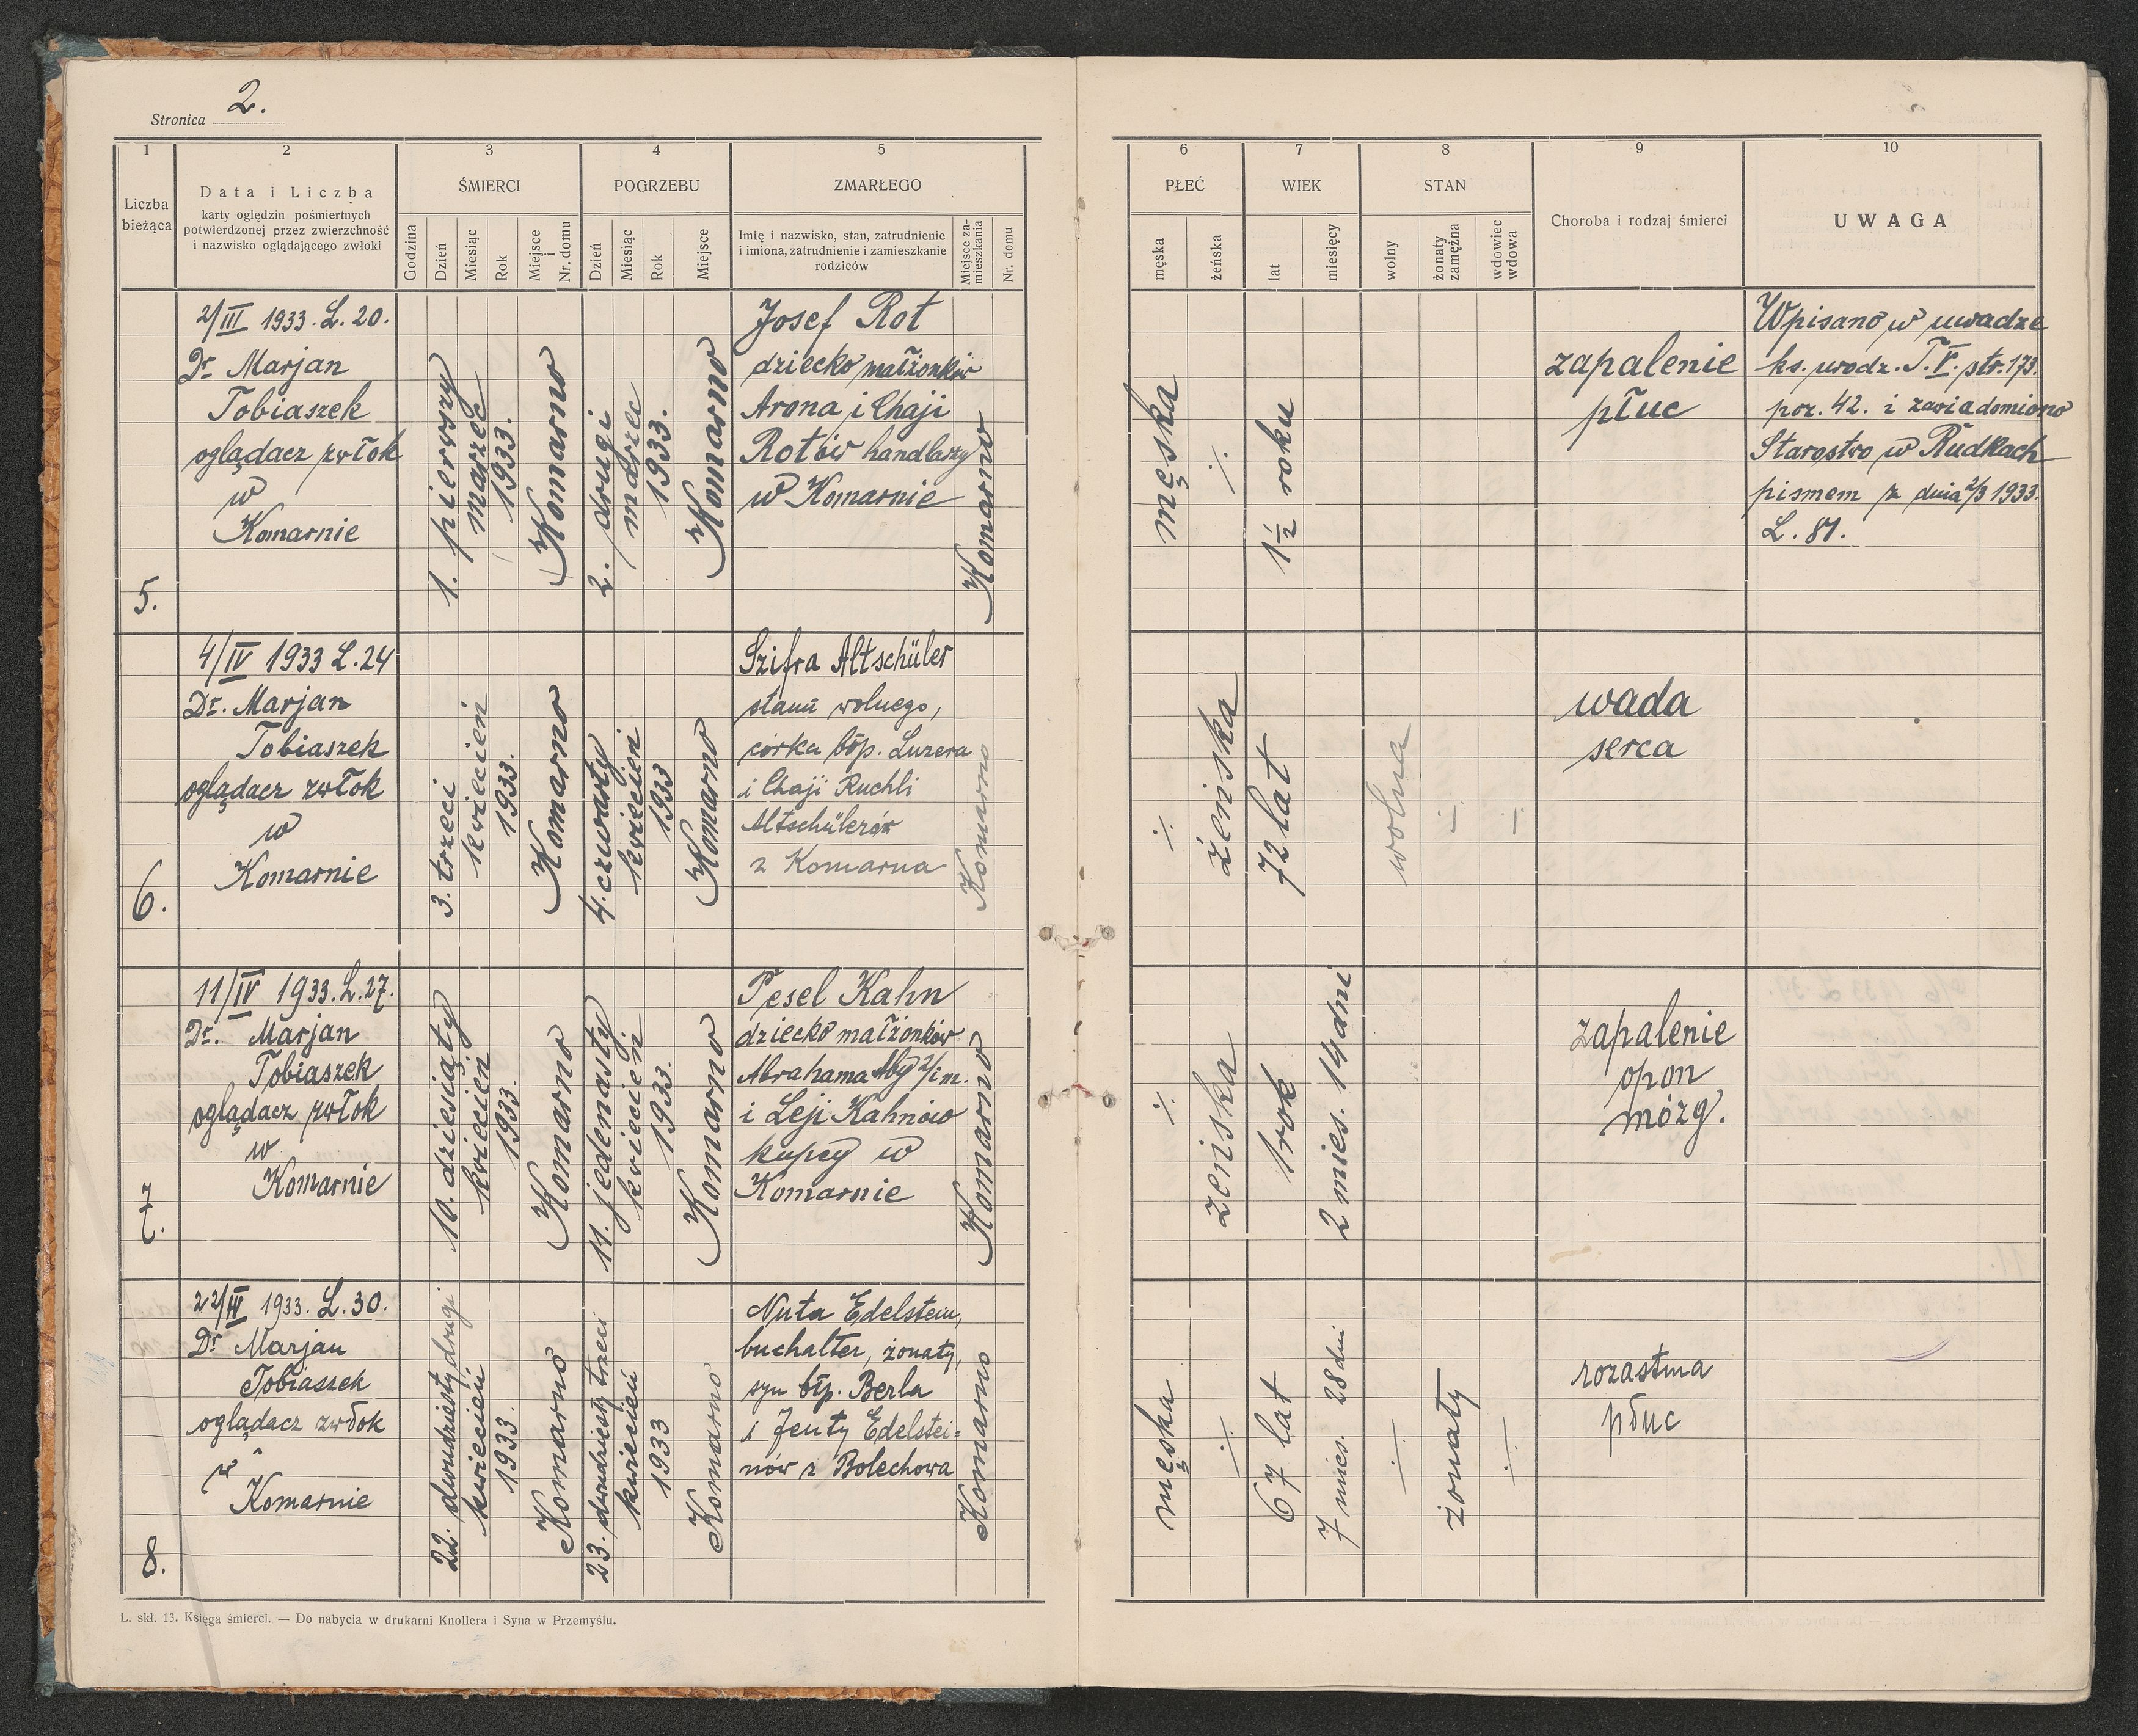 Stronica 2.
1 2 3 4 5
Liczba bieżąca
Data i Liczba
karty oględzin pośmiertnych
potwierdzonej przez zwierzchność
i nazwisko oglądającego zwłoki
ŚMIERCI
Godzina
Dzień
Miesiąc
Rok
Miejsce i Nr. domu
POGRZEBU
Dzień
Miesiąc
Rok
Miejsce
ZMARŁEGO
Imię i nazwisko, stan, zatrudnienie
i imiona, zatrudnienie i zamieszkanie
rodziców
Miejsce za-
mieszkania
Nr. domu
6 7 8 9 10
PŁEĆ
męska
żeńska
WIEK
lat
miesięcy
STAN
wolny
żonaty
zamężna
wdowiec
wdowa
Choroba i rodzaj śmierci
UWAGA
5.
2/III 1933. L. 20.
Dr Marjan
Tobiaszek
oglądacz zwłok
w
Komarnie
1. pierwszy
marzec
1933.
Komarno
2. drugi
marzec
1933.
Komarno
Josef Rot
dziecko małżonków
Arona i Chaji
Rotów handlarzy
w Komarnie
Komarno
męska
÷
1½ roku
zapalenie
płuc
Wpisano w uwadze
ks. urodz. T. V. str. 173.
poz. 42. i zawiadomiono
Starostwo w Rudkach
pismem z dnia 2/3 1933.
L. 81.
6.
4/IV 1933 L. 24
Dr. Marjan
Tobiaszek
oglądacz zwłok
w
Komarnie
3. trzeci
kwiecień
1933.
Komarno
4. czwarty
kwiecień
1933
Komarno
Szifra Altschüler
stanu wolnego,
córka błp. Luzera
i Chaji Ruchli
Altschülerów
z Komarna
Komarno
÷
żeńska
72 lat
wolna
÷
÷
wada
serca
7.
11/IV 1933. L. 27.
Dr. Marjan
Tobiaszek
oglądacz zwłok
w
Komarnie
10. dziesiąty
kwiecień
1933.
Komarno
11. jedenasty
kwiecień
1933.
Komarno
Pesel Kahn
dziecko małżonków
Abrahama Aby 2/im.
i Leji Kahnów
kupcy w
Komarnie
Komarno
÷
żeńska
1 rok
2 mies. 14 dni
zapalenie
opon
mózg.
8.
22/IV 1933. L. 30.
Dr Marjan
Tobiaszek
oglądacz zwłok
w
Komarnie
22. dwudziesty drugi
kwiecień
1933.
Komarno
23. dwudziesty trzeci
kwiecień
1933
Komarno
Nuta Edelstein,
buchalter, żonaty,
syn błp. Berla
i Jenty Edelstei=
nów z Bolechowa
Komarno
męska
÷
67 lat
7 mies. 28 dni
÷
żonaty
÷
rozastma
płuc
L. skł. 13. Księga śmierci. — Do nabycia w drukarni Knollera i Syna w Przemyślu.